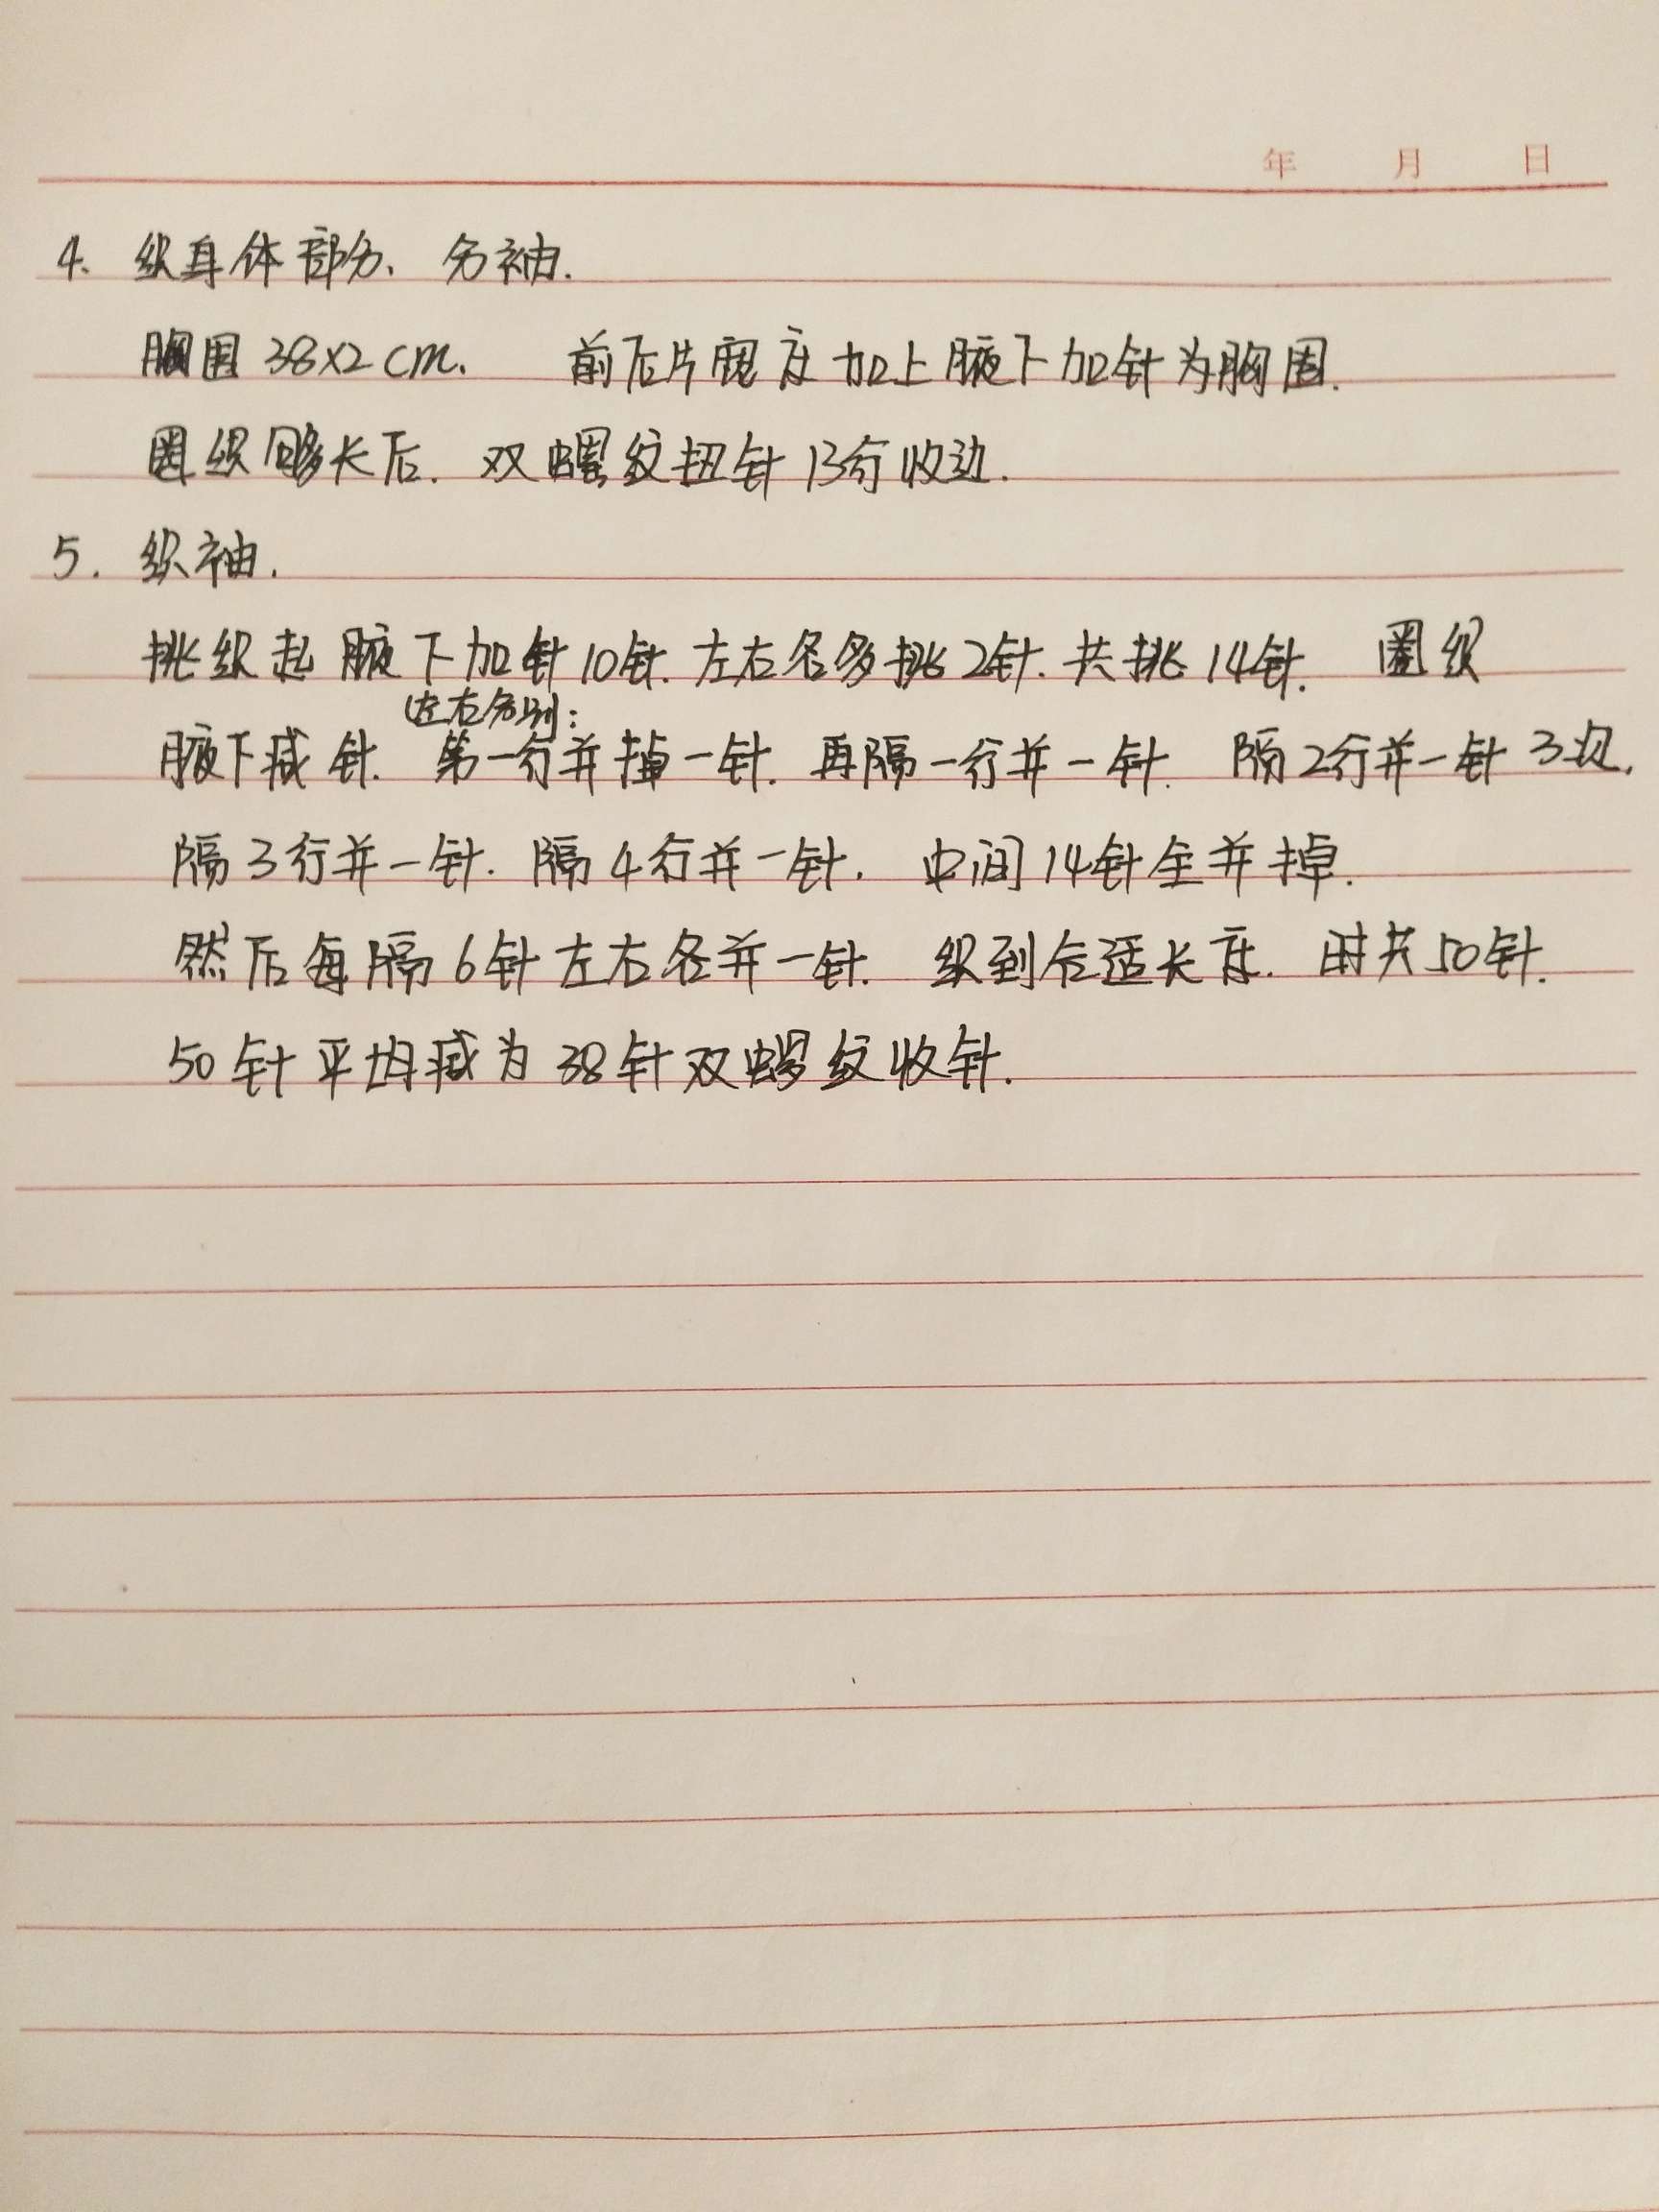 年 月 日
4. 织身体部分、分袖.
胸围 38×2 cm. 前后片宽度加上腋下加针为胸围.
圈织够长后. 双螺纹扭针 13行收边.
5. 织袖.
挑织起腋下加针10针. 左右各多挑2针. 共挑14针. 圈织
(左右分别:
腋下减针. 第一行并掉一针. 再隔一行并一针. 隔2行并一针3次.
隔3行并一针. 隔4行并一针. 中间14针全并掉.
然后每隔6针左右各并一针. 织到合适长度. 时共50针.
50针平均减为38针双螺纹收针.